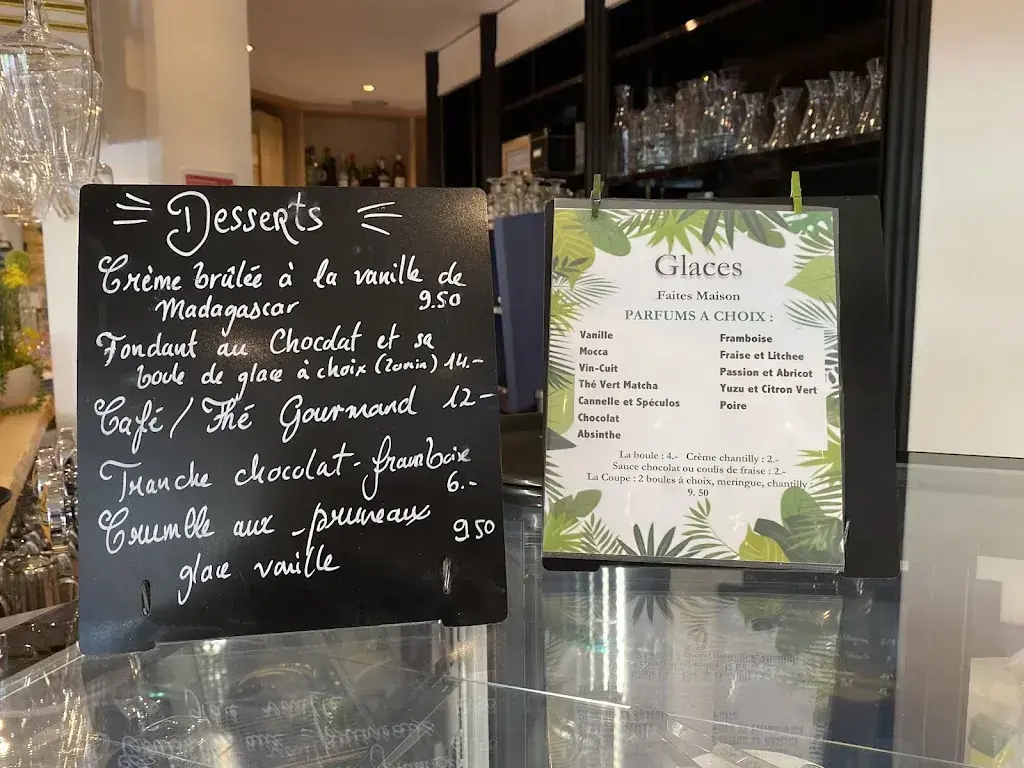 Desserts
Crème brûlée à la vanille de
Madagascar 9.50
Fondant au Chocolat et sa
boule de glace à choix (20min) 14.-
Café / Thé Gourmand 12-
Tranche chocolat-framboise
6.-
Crumble aux pruneaux 9.50
glace vanille
Glaces
Faites Maison
PARFUMS A CHOIX :
Vanille
Mocca
Vin-Cuit
Thé Vert Matcha
Cannelle et Spéculos
Chocolat
Absinthe
Framboise
Fraise et Litchee
Passion et Abricot
Yuzu et Citron Vert
Poire
La boule : 4.- Crème chantilly : 2.-
Sauce chocolat ou coulis de fraise : 2.-
La Coupe : 2 boules à choix, meringue, chantilly :
9. 50